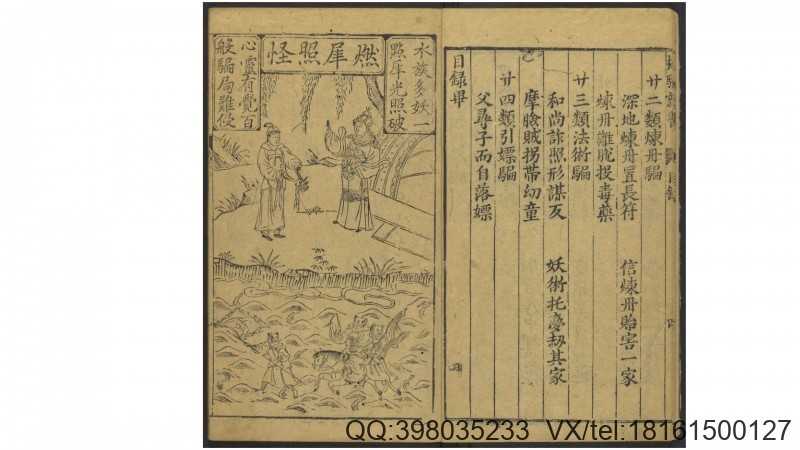 廿二類煉丹騙
深地煉丹置長符　信煉丹貽害一家
煉丹雖脫投毒藥
廿三類法術騙
和尚詐照形謀反　妖術托夢劫其家
摩臉賊拐帶幼童
廿四類引嫖騙
父尋子而自落嫖
目錄畢
燃犀照怪
水族多妖一
點犀光照破
心靈有覺百
般騙局難侵
QQ:398035233 VX/tel:18161500127